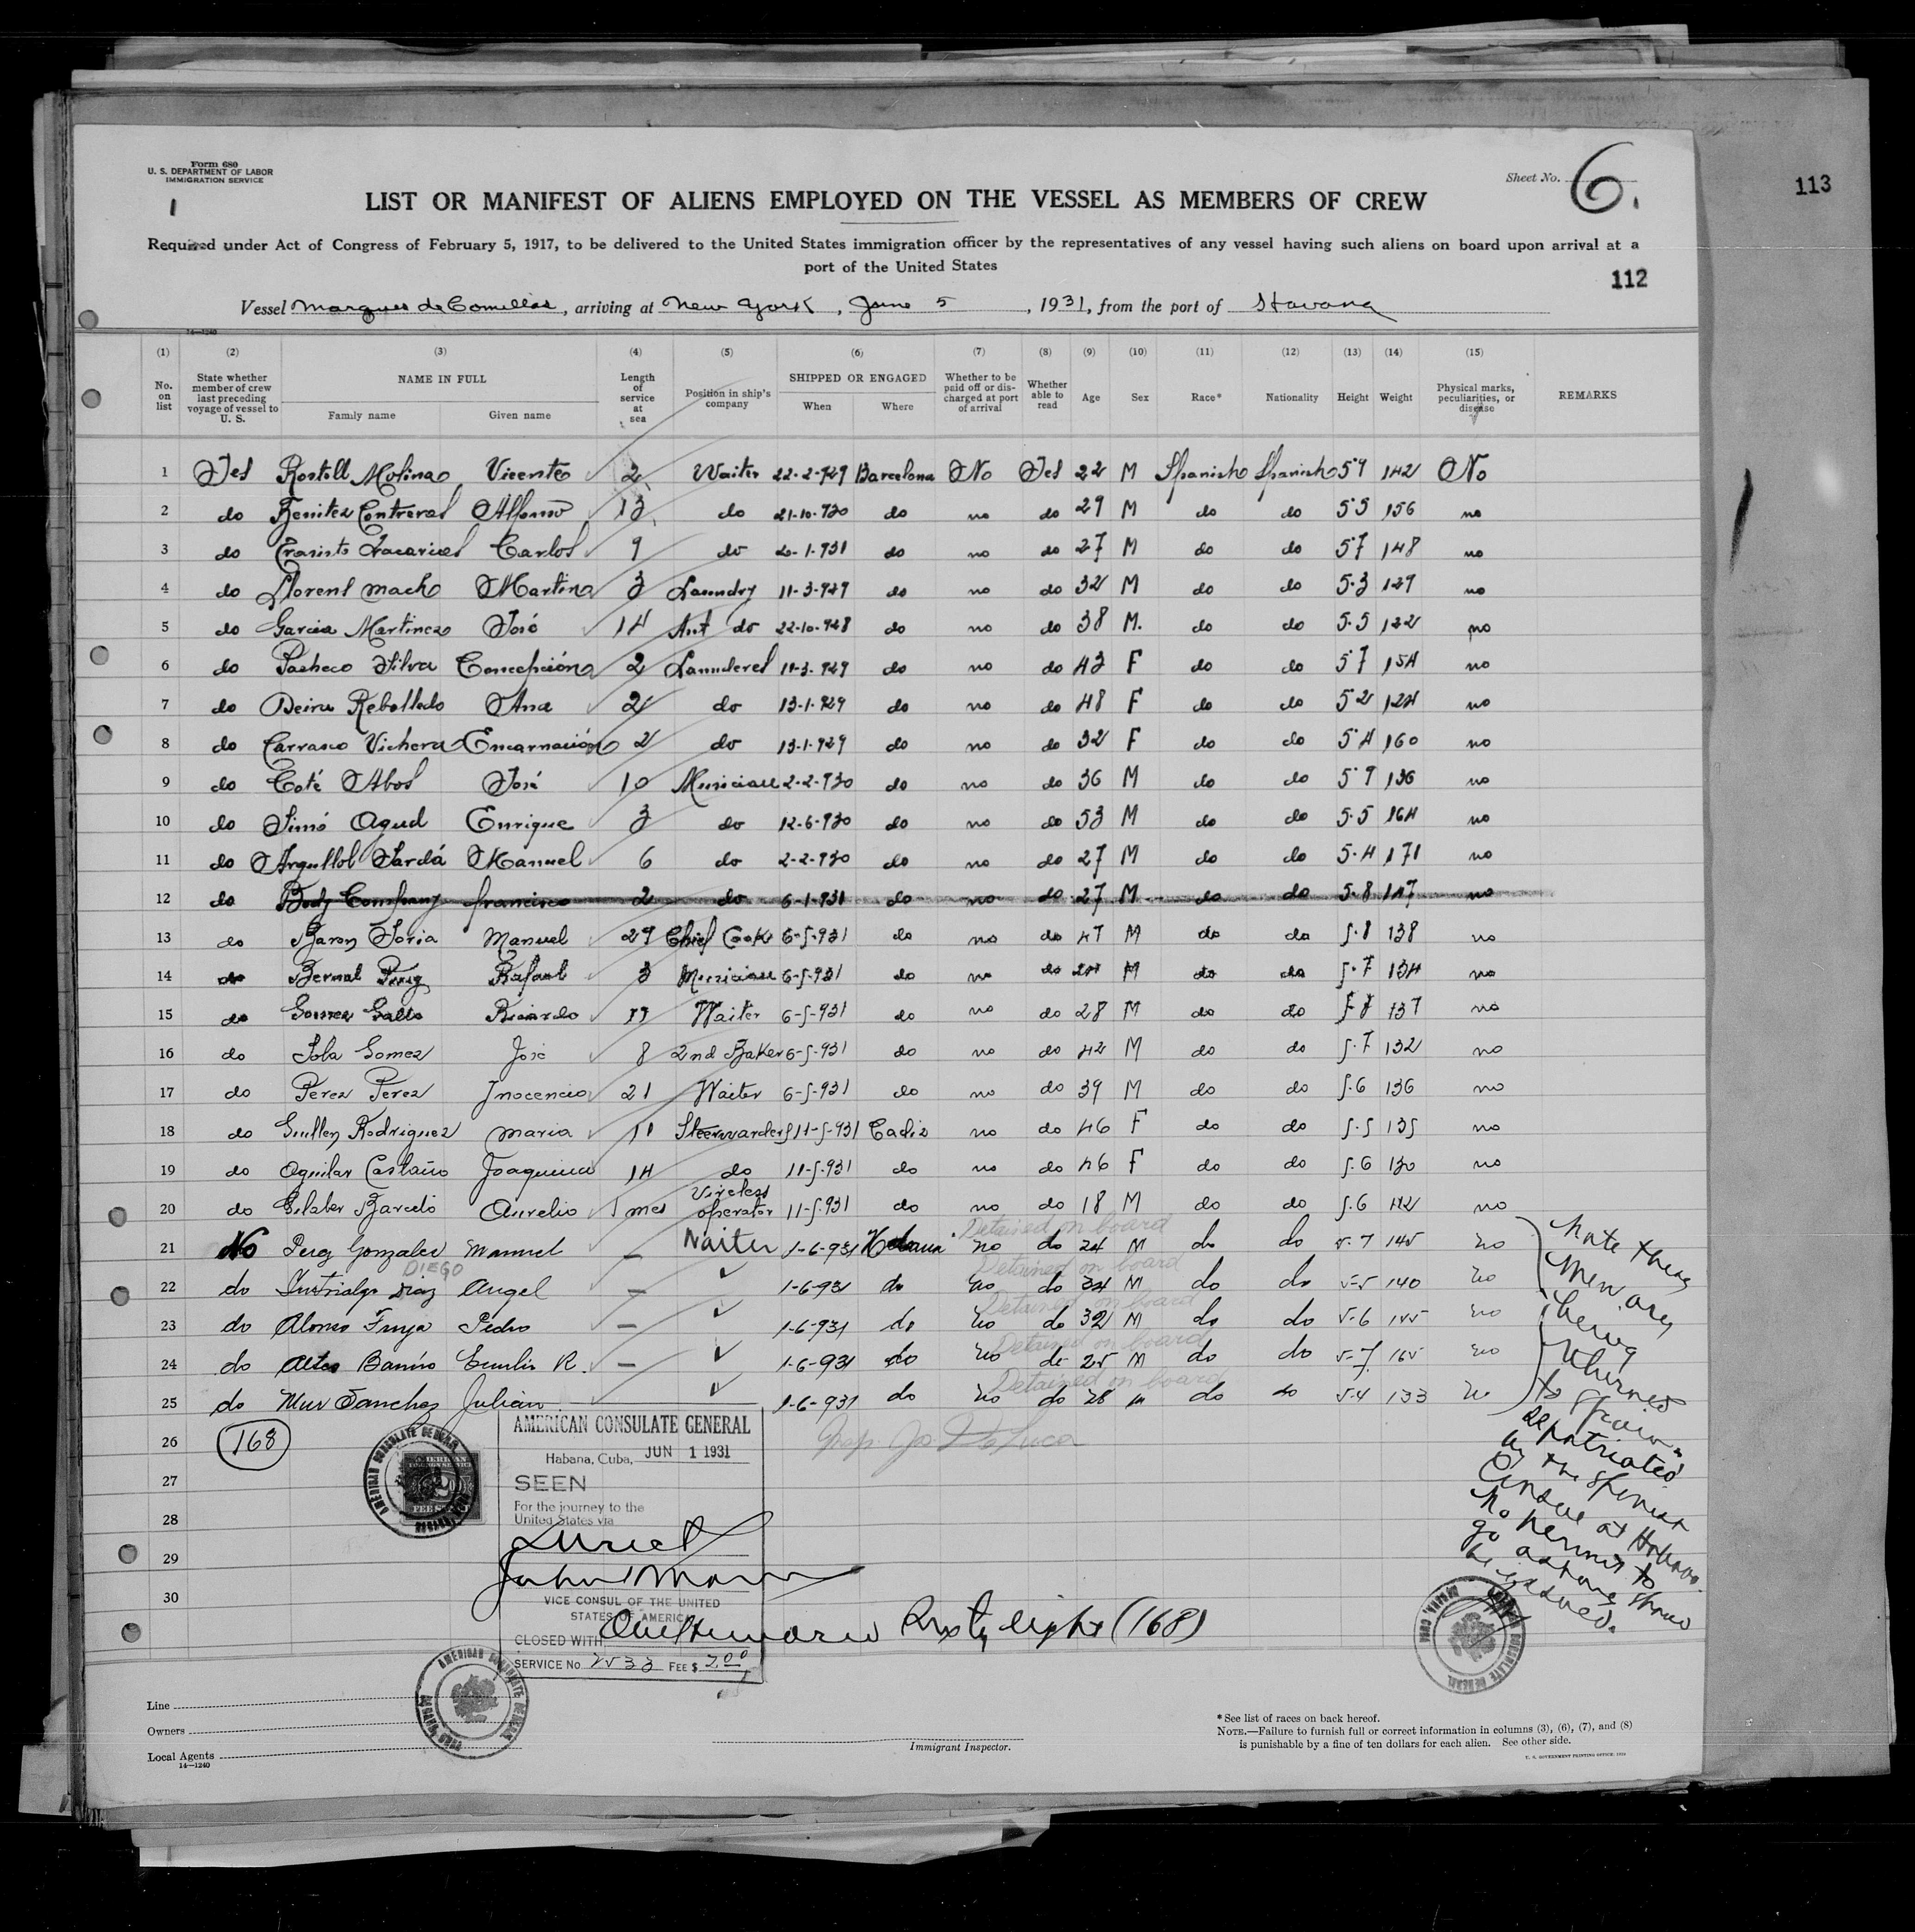 Form 680
U. S. DEPARTMENT OF LABOR
IMMIGRATION SERVICE
1
Sheet No. 6.
113
LIST OR MANIFEST OF ALIENS EMPLOYED ON THE VESSEL AS MEMBERS OF CREW
Required under Act of Congress of February 5, 1917, to be delivered to the United States immigration officer by the representatives of any vessel having such aliens on board upon arrival at a
port of the United States
112
Vessel Marques de Comillas, arriving at New York, June 5, 1931, from the port of Havana
14—1240
(1) (2) (3) (4) (5) (6) (7) (8) (9) (10) (11) (12) (13) (14) (15)
No. on list State whether member of crew last preceding voyage of vessel to U. S. NAME IN FULL Family name Given name Length of service at sea Position in ship's company SHIPPED OR ENGAGED When Where Whether to be paid off or discharged at port of arrival Whether able to read Age Sex Race* Nationality Height Weight Physical marks, peculiarities, or disease REMARKS
1 Yes Rostoll Molina Vicente 2 Waiter 22-2-929 Barcelona No Yes 22 M Spanish Spanish 5 9 142 No
2 do Benitez Contreras Alfonso 13 do 21-10-930 do no do 29 M do do 5 5 156 no
3 do Carlos 9 do 2-1-931 do no do 27 M do do 5 7 148 no
4 do Llorens Macho Martina 3 Laundry 11-3-929 do no do 32 M do do 5.3 129 no
5 do Garcia Martinez José 14 Ast do 22-10-928 do no do 38 M. do do 5.5 122 no
6 do Pacheco Silva Concepción 2 Launderes 11-3-929 do no do 43 F do do 5 7 154 no
7 do Rebolledo Ana 2 do 13-1-929 do no do 48 F do do 5 2 124 no
8 do Carrasco Vichera Encarnación 2 do 13-1-929 do no do 32 F do do 5 4 160 no
9 do Coté Abos José 10 Musician 2-2-930 do no do 36 M do do 5 9 136 no
10 do Simó Agud Enrique 3 do 12-6-930 do no do 53 M do do 5.5 164 no
11 do Argullol Sardá Manuel 6 do 2-2-930 do no do 27 M do do 5.4 171 no
12 do Company Francisco 2 do 6-1-931 do no do 27 M do do 5.8 147 no
13 do Baron Soria Manuel 29 Chief Cook 6-5-931 do no do 47 M do do 5.8 138 no
14 do Bernal Puig Rafael 3 Musician 6-5-931 do no do 24 M do do 5.7 134 no
15 do Gomez Gallo Ricardo Waiter 6-5-931 do no do 28 M do do 137 no
16 do Sola Gomez José 8 2nd Baker 6-5-931 do no do 42 M do do 5.7 132 no
17 do Perez Perez Inocencio 21 Waiter 6-5-931 do no do 39 M do do 5.6 136 no
18 do Guillen Rodriguez Maria 11 Steewarders 11-5-931 Cadiz no do 46 F do do 5.5 135 no
19 do Aguilar Castaño Joaquina 14 do 11-5-931 do no do 46 F do do 5.6 130 no
20 do Gilaber Barceló Aurelio 1 mes Vireless operator 11-5-931 do no do 18 M do do 5.6 142 no
Detained on board
21 No Perez Gonzalez Manuel — Waiter 1-6-931 Habana no do 24 M do do 5-7 145 no
DIEGO Detained on board
22 do Diaz Angel — 1-6-931 do no do 34 M do do 5-5 140 no
Detained on board
23 do Alonso Pedro — 1-6-931 do no do 32 M do do 5-6 155 no
Detained on board
24 do Emilio R. — 1-6-931 do no do 25 M do do 5-7 165 no
Detained on board
25 do Mur Sanchez Julian 1-6-931 do no do 28 M do do 5-4 133 no
Note these
men are
being
returned
to Spain
repatriated
by the Spanish
Consul at Habana.
No permit to
go ashore should
be issued.
26
168
27
28
29
30
AMERICAN CONSULATE GENERAL
Habana, Cuba, JUN 1 1931
SEEN
For the journey to the
United States via
Direct
VICE CONSUL OF THE UNITED
STATES OF AMERICA
CLOSED WITH One Hundred Sixty eight (168)
SERVICE No. 2533 FEE $ 2.00
AMERICAN CONSULATE GENERAL
HABANA, CUBA
Line
Owners
Local Agents
14—1240
Immigrant Inspector.
*See list of races on back hereof.
NOTE.—Failure to furnish full or correct information in columns (3), (6), (7), and (8)
is punishable by a fine of ten dollars for each alien. See other side.